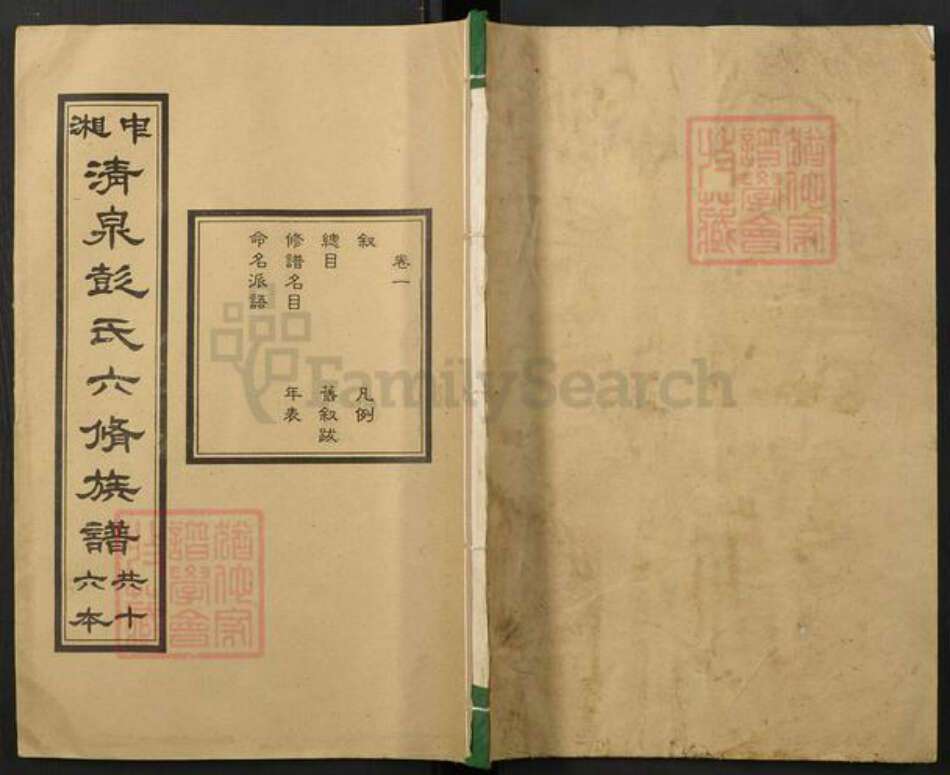 猶他家
譜學會
特藏
卷一
叙 凡例
總目 舊叙跋
修譜名目 年表
命名派語
中湘
清泉彭氏六脩族譜
共十
六本
猶他家
譜學會
特藏
FamilySearch